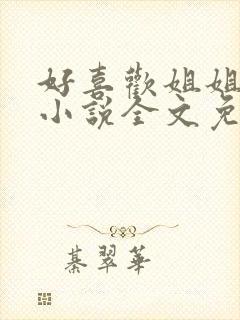 好喜歡姐姐
小說全文免
綦翠華